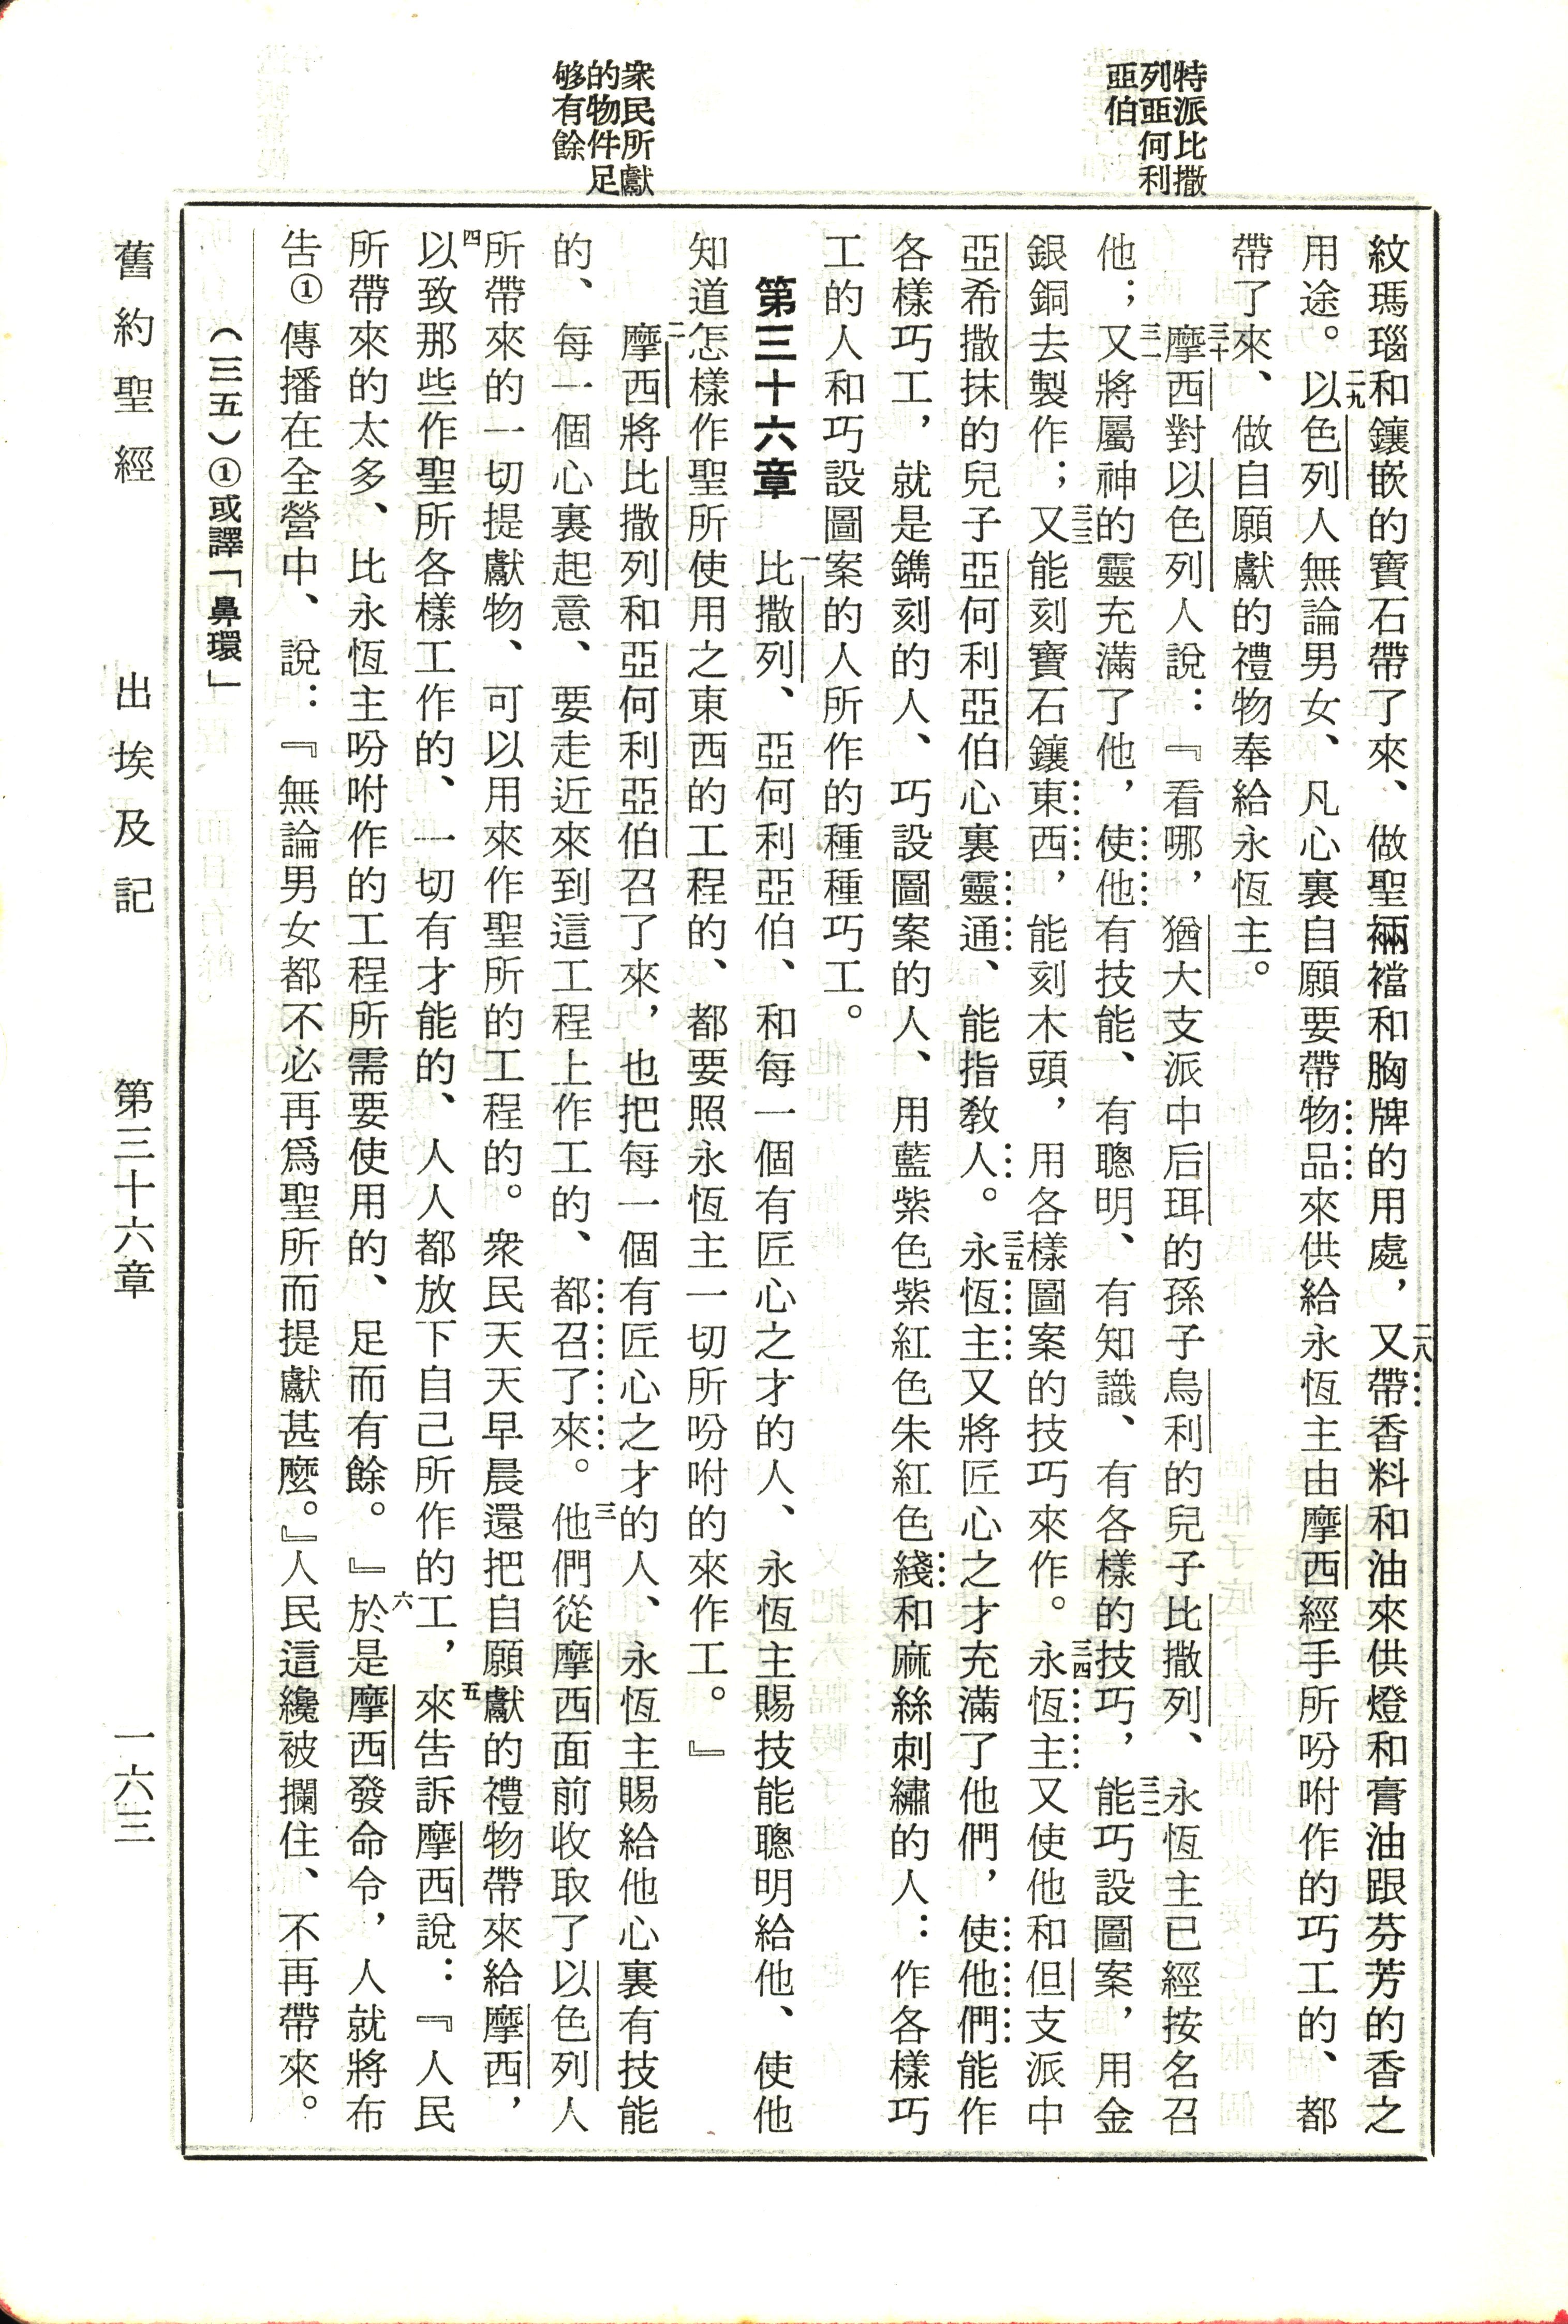 特派比撒
列亞何利
亞伯
衆民所獻
的物件足
够有餘
紋瑪瑙和鑲嵌的寶石帶了來、做聖裲襠和胸牌的用處，二八又帶香料和油來供燈和膏油跟芬芳的香之
用途。二九以色列人無論男女、凡心裏自願要帶物品來供給永恆主由摩西經手所吩咐作的巧工的、都
帶了來、做自願獻的禮物奉給永恆主。
三十摩西對以色列人說：『看哪，猶大支派中后珥的孫子烏利的兒子比撒列、永恆主已經按名召
他；三一又將屬神的靈充滿了他，使他有技能、有聰明、有知識、有各樣的技巧，三二能巧設圖案，用金
銀銅去製作；三三又能刻寶石鑲東西，能刻木頭，用各樣圖案的技巧來作。三四永恆主又使他和但支派中
亞希撒抹的兒子亞何利亞伯心裏靈通、能指教人。三五永恆主又將匠心之才充滿了他們，使他們能作
各樣巧工，就是鐫刻的人、巧設圖案的人、用藍紫色紫紅色朱紅色綫和麻絲刺繡的人：作各樣巧
工的人和巧設圖案的人所作的種種巧工。
第三十六章　一比撒列、亞何利亞伯、和每一個有匠心之才的人、永恆主賜技能聰明給他、使他
知道怎樣作聖所使用之東西的工程的、都要照永恆主一切所吩咐的來作工。』
二摩西將比撒列和亞何利亞伯召了來，也把每一個有匠心之才的人、永恆主賜給他心裏有技能
的、每一個心裏起意、要走近來到這工程上作工的、都召了來。三他們從摩西面前收取了以色列人
所帶來的一切提獻物、可以用來作聖所的工程的。衆民天天早晨還把自願獻的禮物帶來給摩西，
四以致那些作聖所各樣工作的、一切有才能的、人人都放下自己所作的工，五來告訴摩西說：『人民
所帶來的太多、比永恆主吩咐作的工程所需要使用的、足而有餘。』六於是摩西發命令，人就將布
告①傳播在全營中、說：『無論男女都不必再爲聖所而提獻甚麼。』人民這纔被攔住、不再帶來。
（三五）①或譯「鼻環」
舊約聖經　出埃及記　第三十六章　一六三